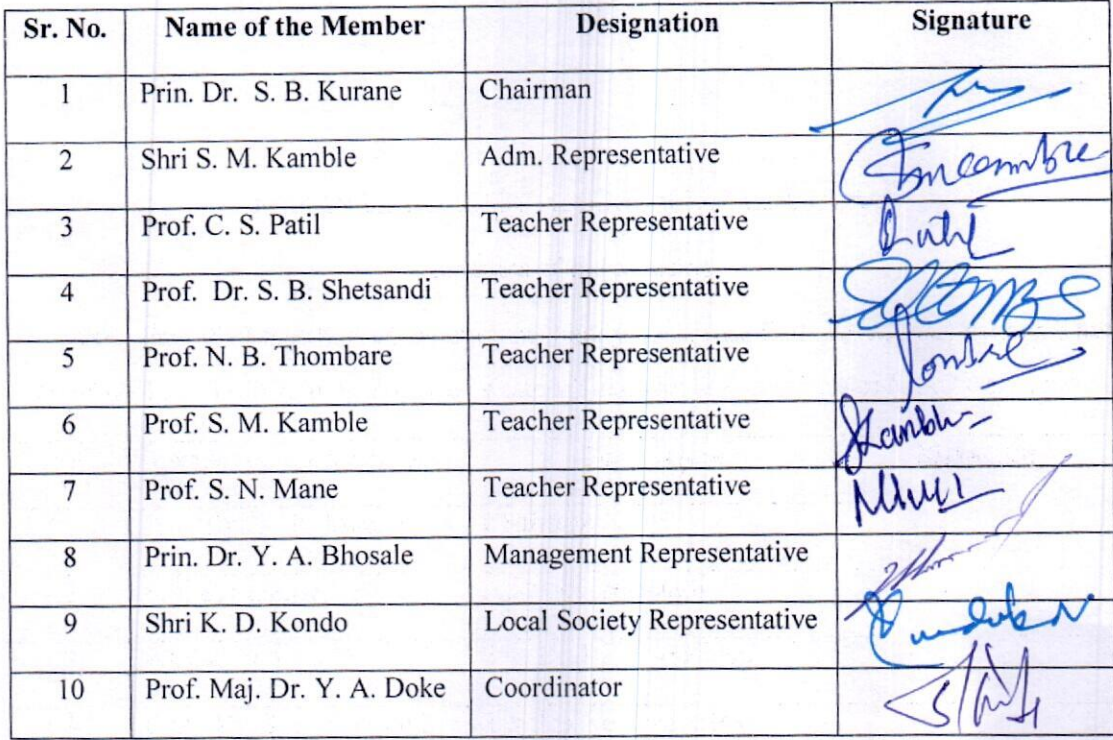 Sr. No. Name of the Member Designation Signature
1 Prin. Dr. S. B. Kurane Chairman
2 Shri S. M. Kamble Adm. Representative
3 Prof. C. S. Patil Teacher Representative
4 Prof. Dr. S. B. Shetsandi Teacher Representative
5 Prof. N. B. Thombare Teacher Representative
6 Prof. S. M. Kamble Teacher Representative
7 Prof. S. N. Mane Teacher Representative
8 Prin. Dr. Y. A. Bhosale Management Representative
9 Shri K. D. Kondo Local Society Representative
10 Prof. Maj. Dr. Y. A. Doke Coordinator